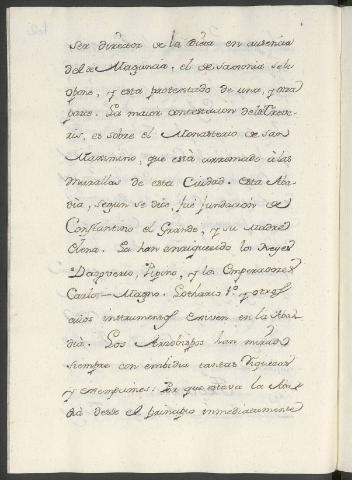 ser director de la Dieta en ausencia
del de Maguncia, el de Saxonia se le
opone, y esta protestado de una, y otra
parte. La maior contestacion de los Treve-
ris, es sobre el Monasterio de San
Maximino, que està arrimado à las
murallas de esta Ciudad. Esta Aba-
dia, segun se dice, fue fundacion de
Constantino el Grande, y su Madre
Elena. La han enriquecido los Reyes
Dagoverto, Pipino, y los Emperadores
Carlo-Magno. Lothario 1º y otros
cuios instrumentos existen en la Aba-
dia. Los Arzobispos han mirado
siempre con embidia tantas riquezas
y exempciones: Por que estava la Aba-
dia desde el principio inmediatamente